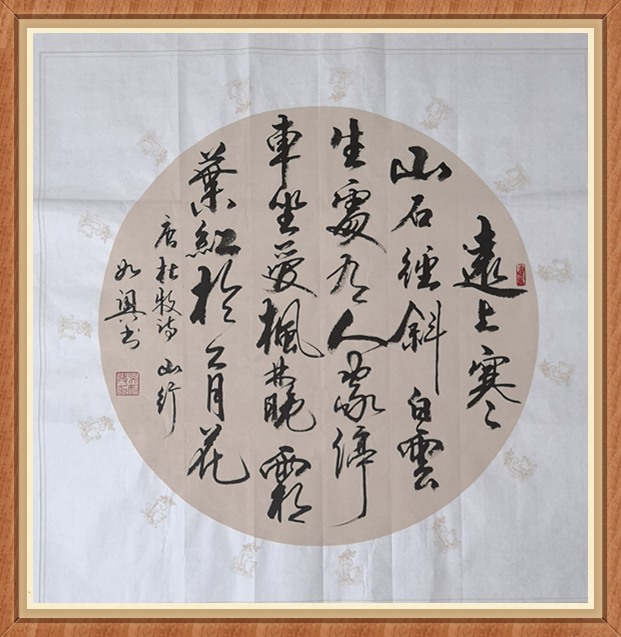 遠上寒
山石徑斜白雲
生處有人家停
車坐愛楓林晚霜
葉紅於二月花
唐杜牧诗山行
如书